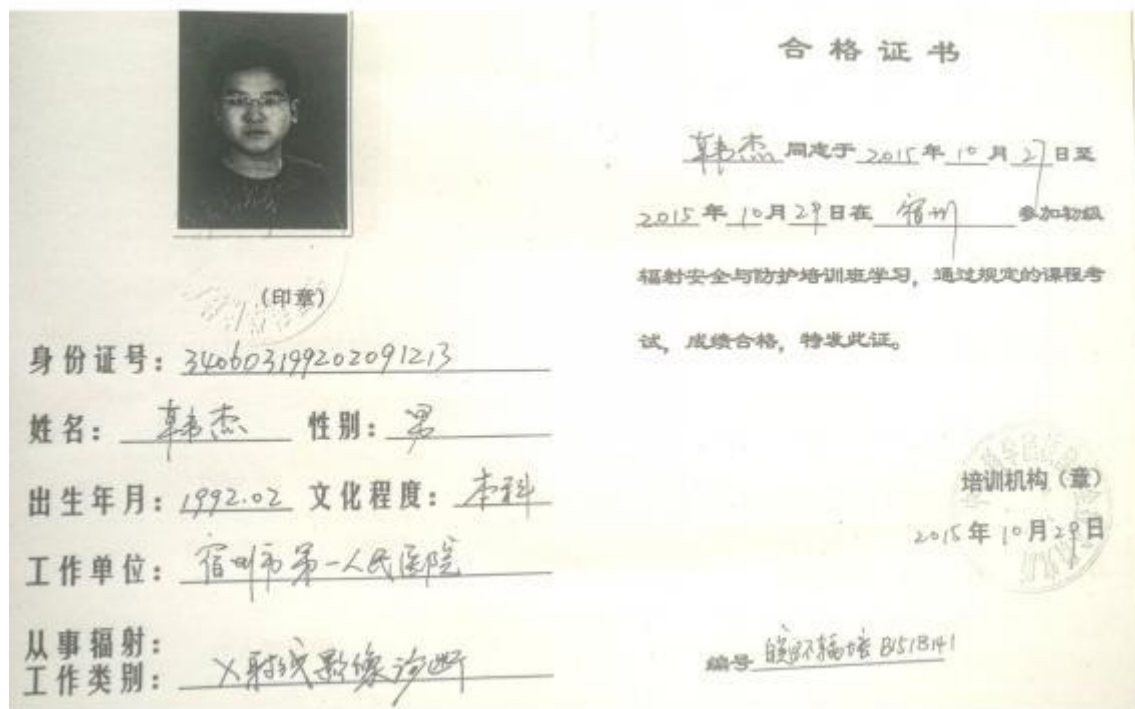 (印章)
身份证号:340603199202091213
姓名:韩杰 性别:男
出生年月:1992.02 文化程度:本科
工作单位:宿州市第一人民医院
从事辐射:
工作类别:X射线影像诊断
合格证书
韩杰同志于2015年10月27日至
2015年10月29日在宿州参加初级
辐射安全与防护培训班学习,通过规定的课程考
试,成绩合格,特发此证。
培训机构(章)
2015年10月29日
编号 皖环辐培B151B141